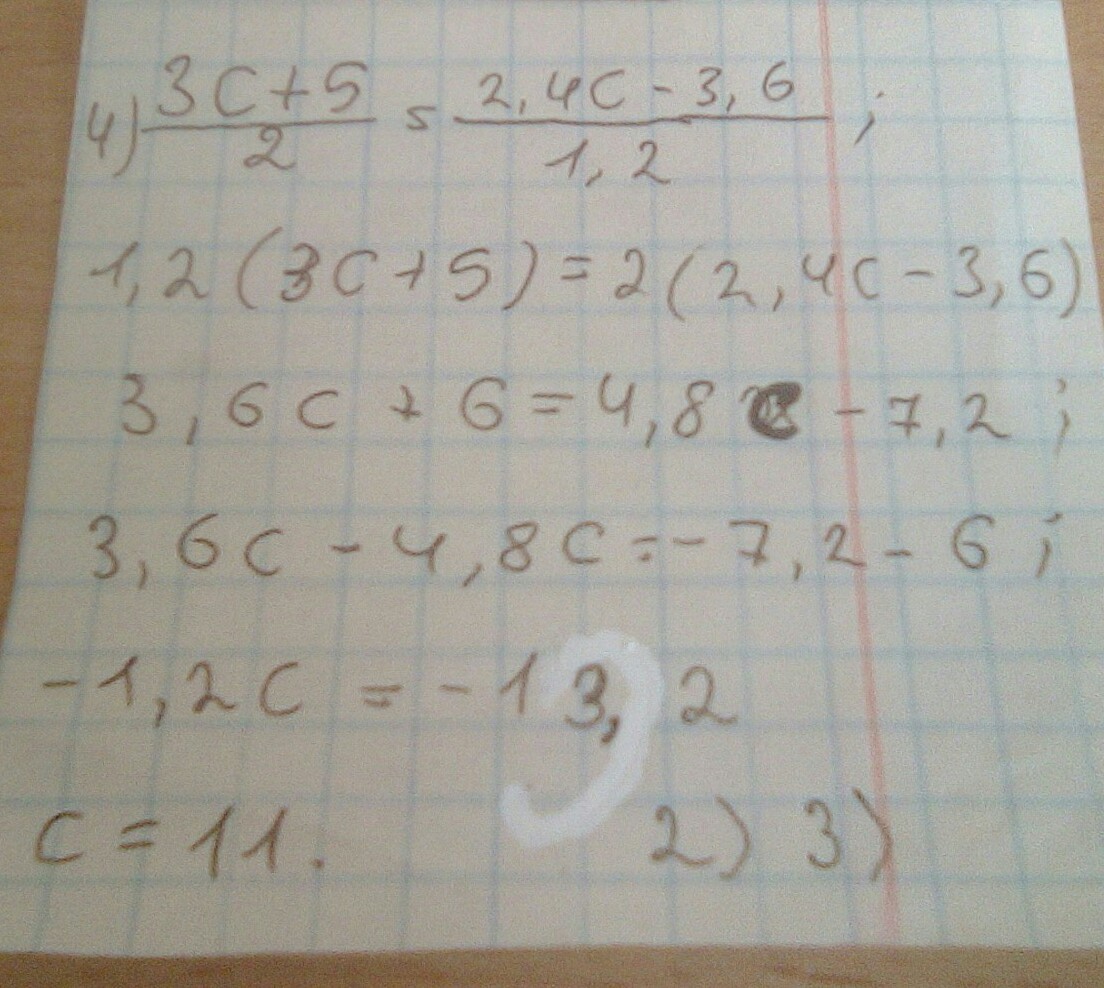 4) 3c+5/2 = 2,4c-3,6/1,2 ;
1,2(3c+5)=2(2,4c-3,6)
3,6c+6=4,8c-7,2 ;
3,6c-4,8c=-7,2-6 ;
-1,2c=-13,2
c=11. 2) 3)